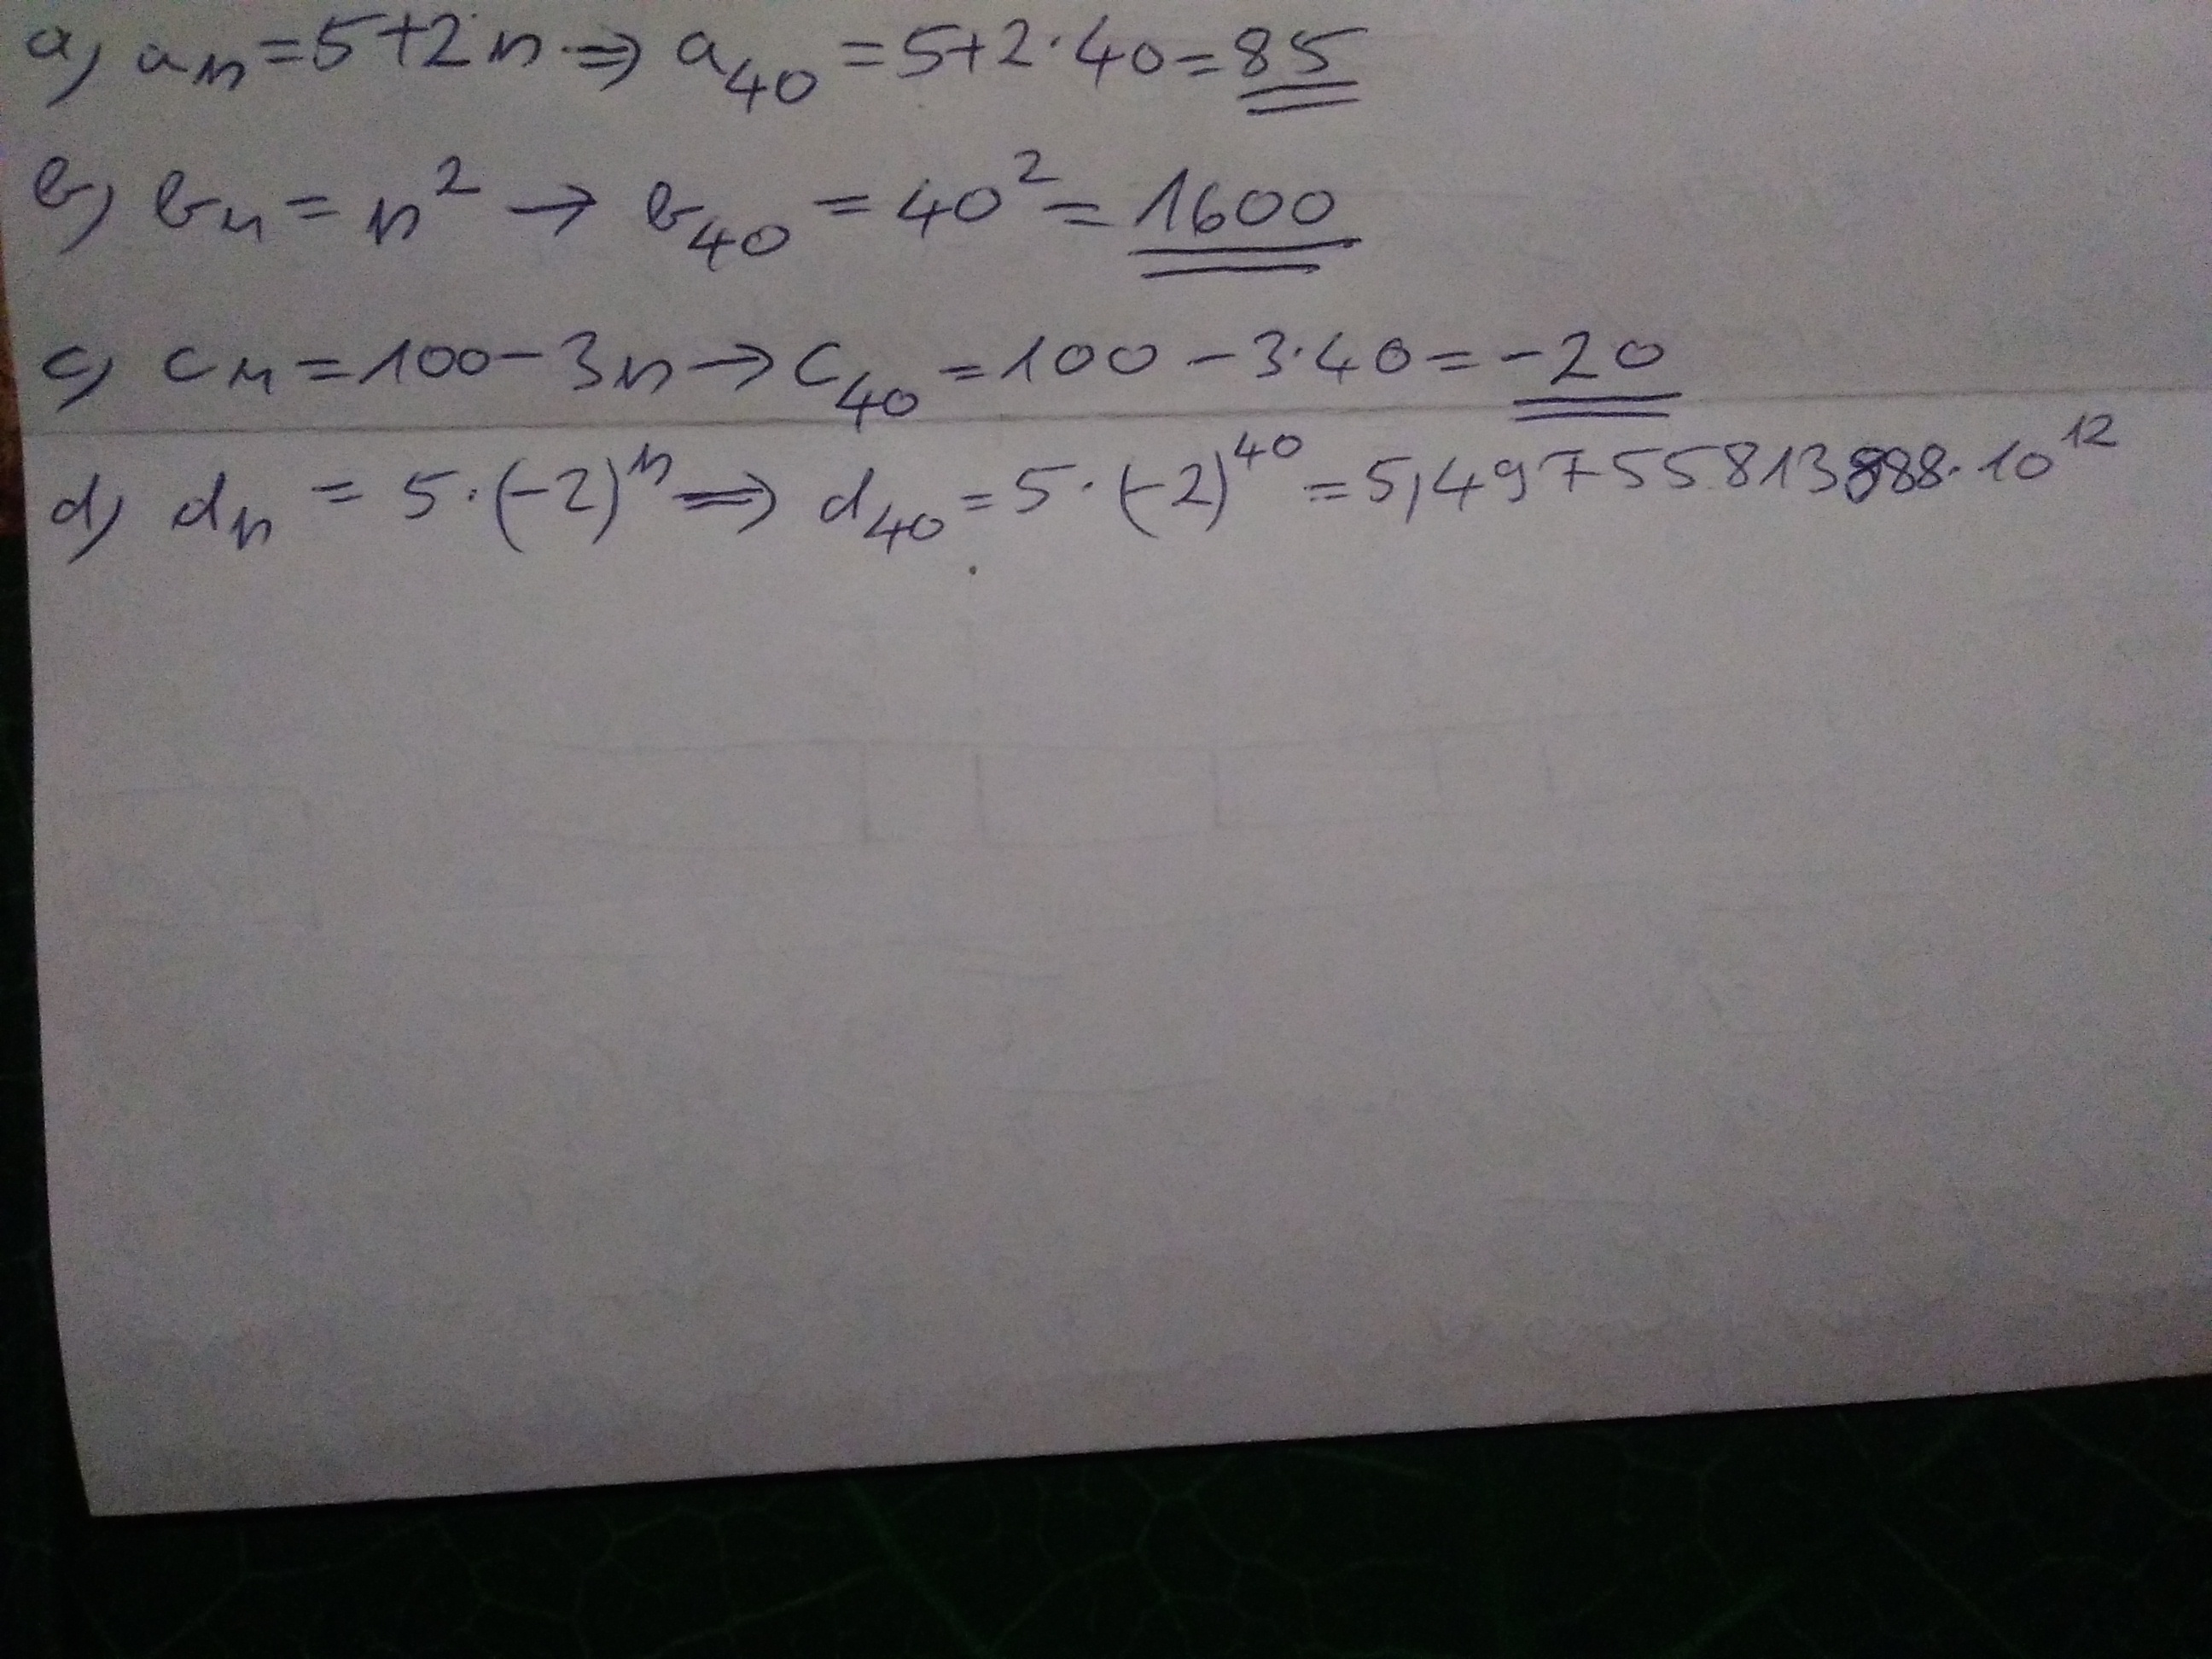 a) aₙ=5+2n ⇒ a₄₀ =5+2·40=85
b) bₙ = n² → b₄₀ = 40² = 1600
c) cₙ=100-3n → c₄₀ =100-3·40=-20
d) dₙ = 5·(-2)ⁿ ⇒ d₄₀ = 5·(-2)⁴⁰ = 5,497 55 813 888·10¹²